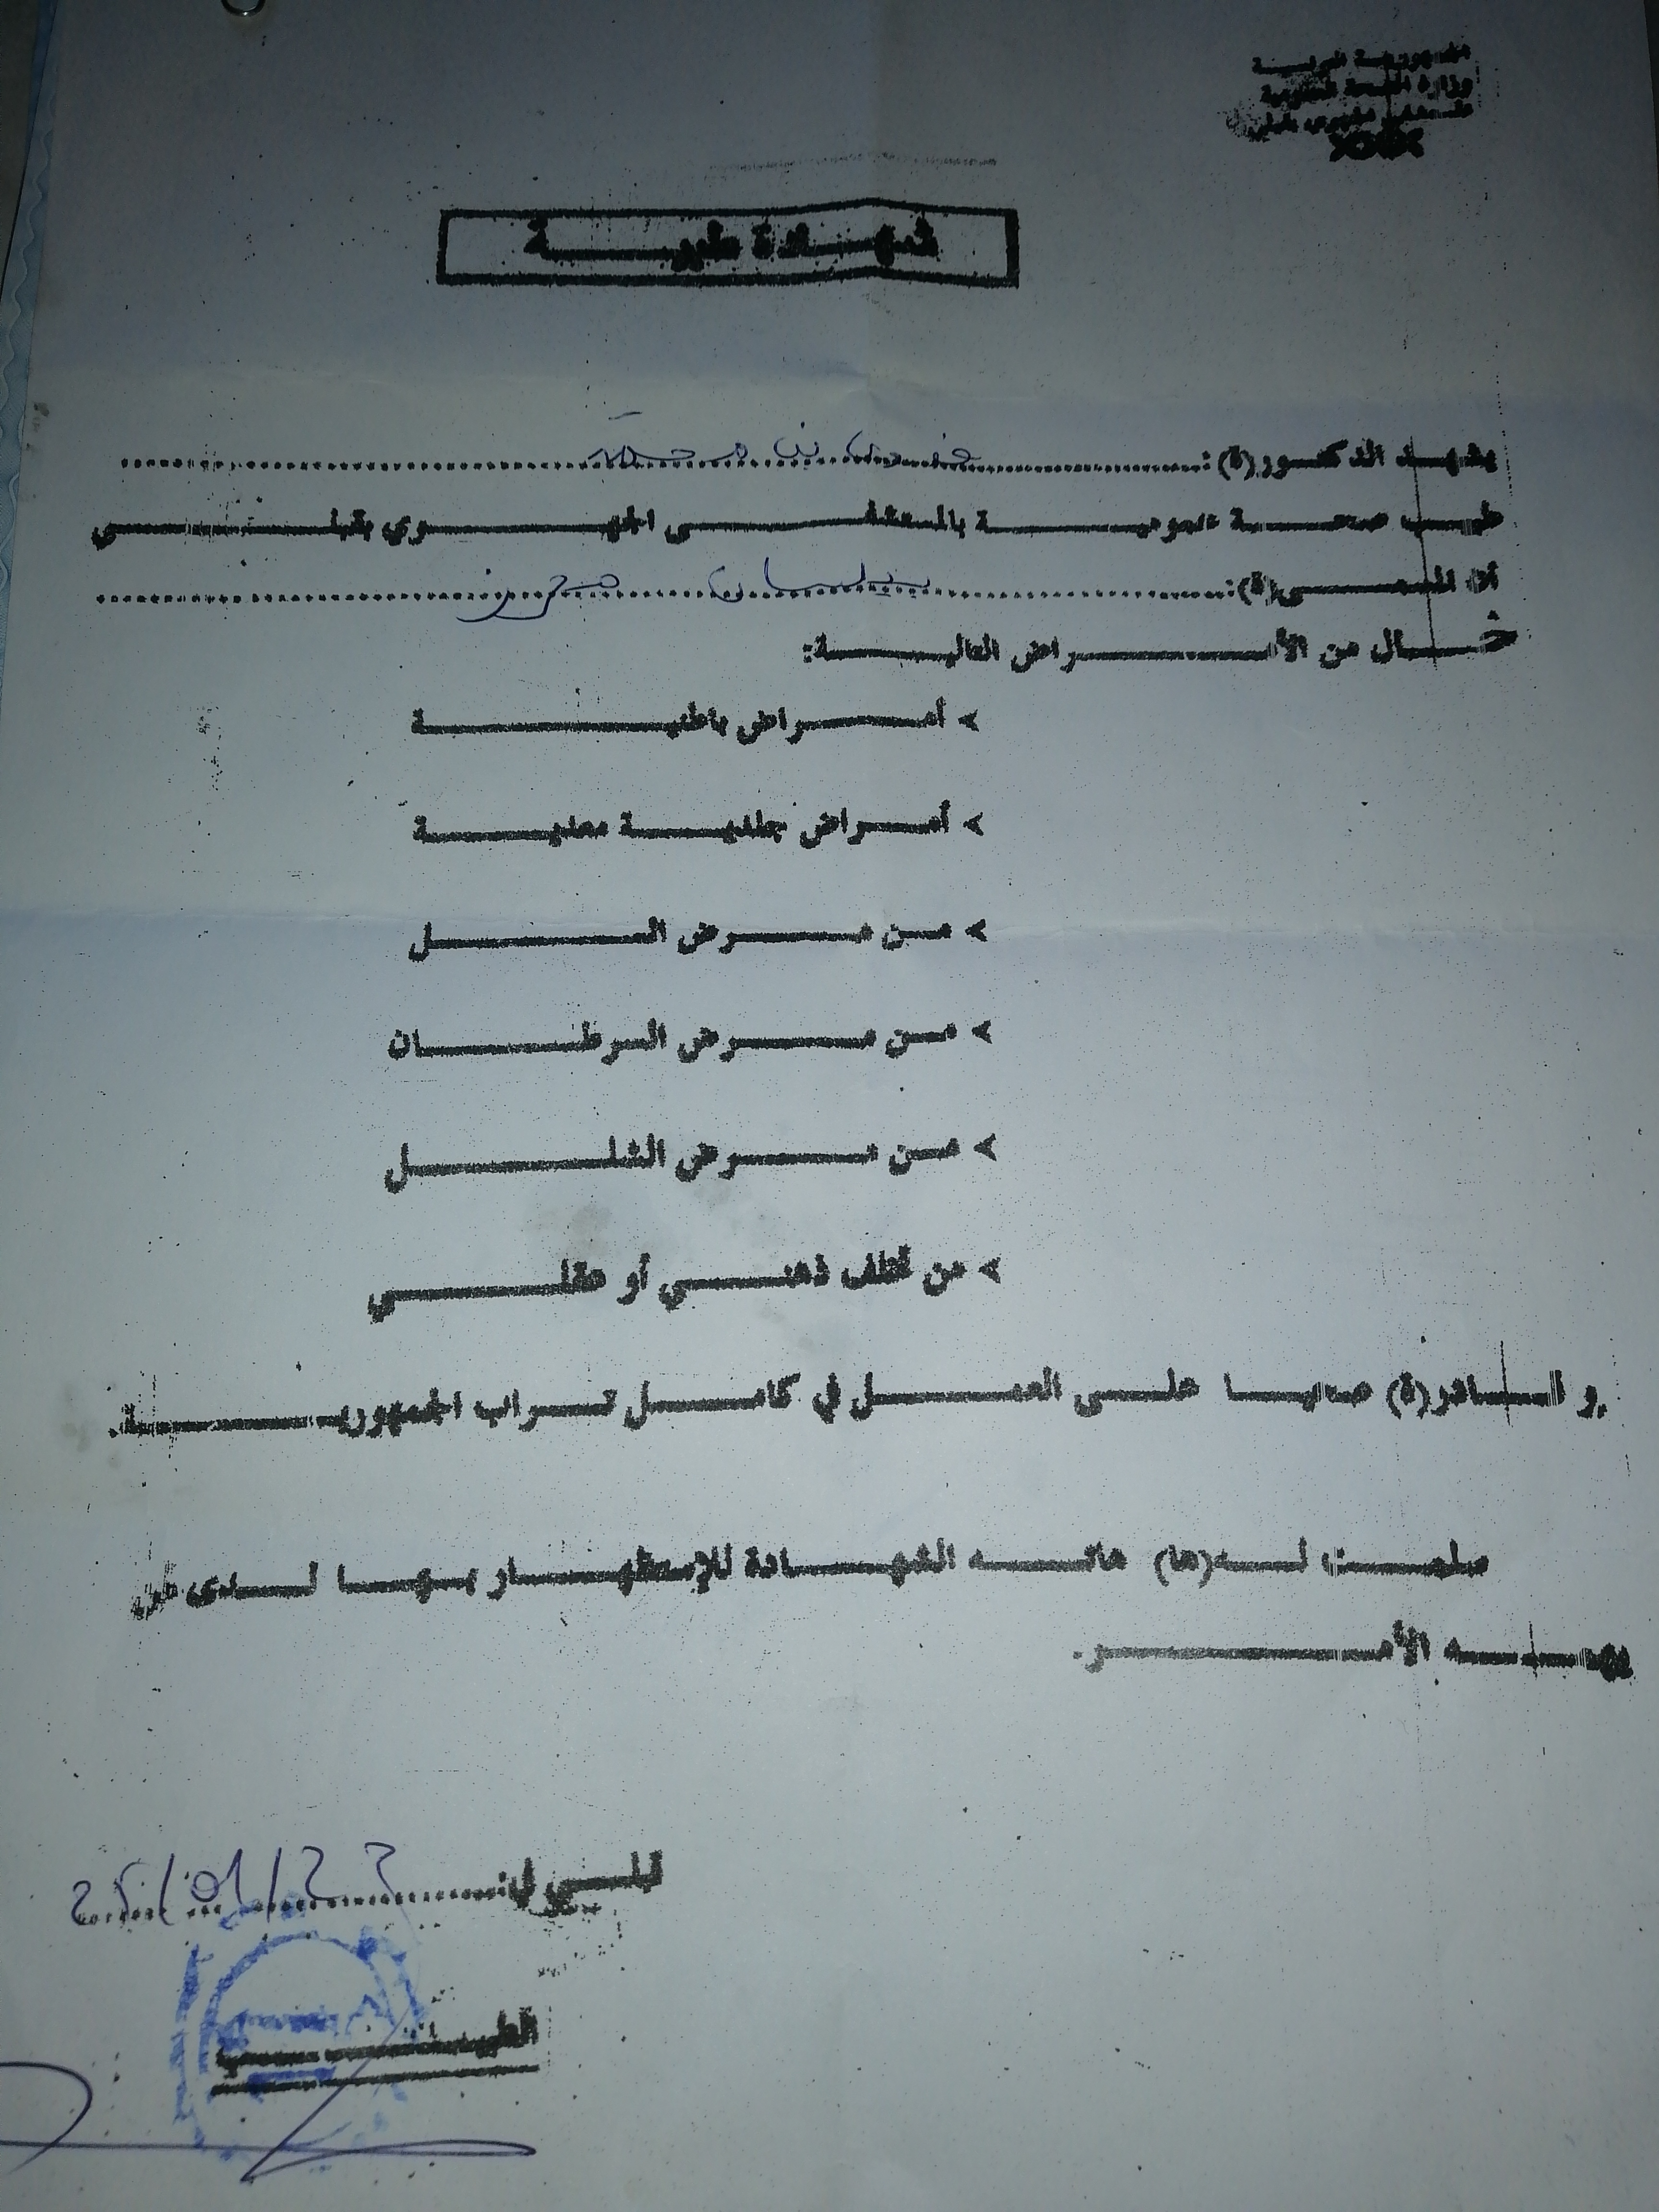 الجمهورية التونسية
وزارة الصحة العمومية
المستشفى الجهوي بقبلي
شهادة طبية
يشهد الدكتور(ة):
طبيب صحة عمومية بالمستشفى الجهوي بقبلي
أن المسمى(ة):
خال من الأمراض التالية:
> أمراض باطنية
> أمراض جلدية معدية
> من مرض السل
> من مرض السرطان
> من مرض الشلل
> من تخلف ذهني أو عقلي
و قادر(ة) صحيا على العمل في كامل تراب الجمهورية.
سلمت له(ها) هاته الشهادة للإستظهار بها لدى من
يهمه الأمر.
قبلي في: 25/01/23
الطبيب